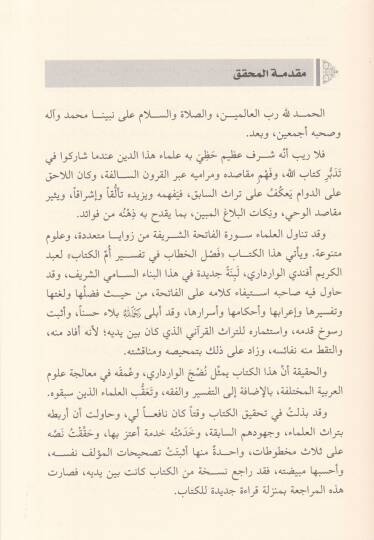 مقدمـة المحقق
الحمـد لله رب العالميـن، والصلاة والسـلام على نبينا محمد وآله
وصحبه أجمعين، وبعد.
فلا ريب أنَّه شرف عظيم حَظِيَ به علماء هذا الدين عندما شاركوا في
تَدَبُّر كتاب الله، وفَهْم مقاصده ومراميه عبر القرون السـالفة، وكان اللاحق
على الدوام يَعكُفُ على تراث السابق، فيَفهمه ويزيده تألُّقاً وإشراقاً، ويثير
مقاصد الوحي، ونِكات البلاغ المبين، بما يقدح به ذِهْنُه من فوائد.
وقد تناول العلماء سـورة الفاتحة الشـريفة من زوايـا متعددة، وعلوم
متنوعة. ويأتي هذا الكتاب «فَصْل الخطاب في تفسـير أُمِّ الكتاب» لعبد
الكريم أفندي الوارداري، لَبِنَةً جديدة في هذا البناء السـامي الشريف، وقد
حاول فيه صاحبه استيفاء كلامه على الفاتحة، من حيـث فضلُها ولغتها
وتفسيرها وإعرابها وأحكامها وأسرارها، وقد أبلى رَحِمَهُ اللهُ بلاء حسناً، وأثبت
رسوخ قدمه، واستثماره للتراث القرآني الذي كان بين يديه؛ لأنه أفاد منه،
والتقط منه نفائسه، وزاد على ذلك بتمحيصه ومناقشته.
والحقيقة أنَّ هذا الكتاب يمثِّل نُضْجَ الوارداري، وعُمقَه في معالجة علوم
العربية المختلفة، بالإضافة إلى التفسير والفقه، وتَعقُّب العلماء الذين سبقوه.
وقد بذلتُ في تحقيق الكتاب وقتاً كان نافعـاً لي، وحاولت أن أربطه
بتراث العلماء، وجهودهم السابقة، وخَدَمْتُه خدمة أعتز بها، وحقَّقْتُ نَصَّه
على ثلاث مخطوطات، واحدةٌ منها أثبتَتْ تصحيحات المؤلف نفسـه،
وأحسبها مبيضته، فقد راجع نسخة من الكتاب كانت بين يديه، فصارت
هذه المراجعة بمنزلة قراءة جديدة للكتاب.